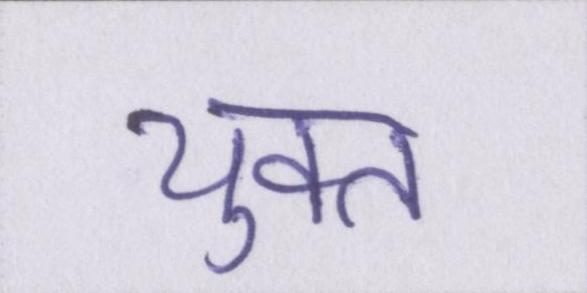 युक्त